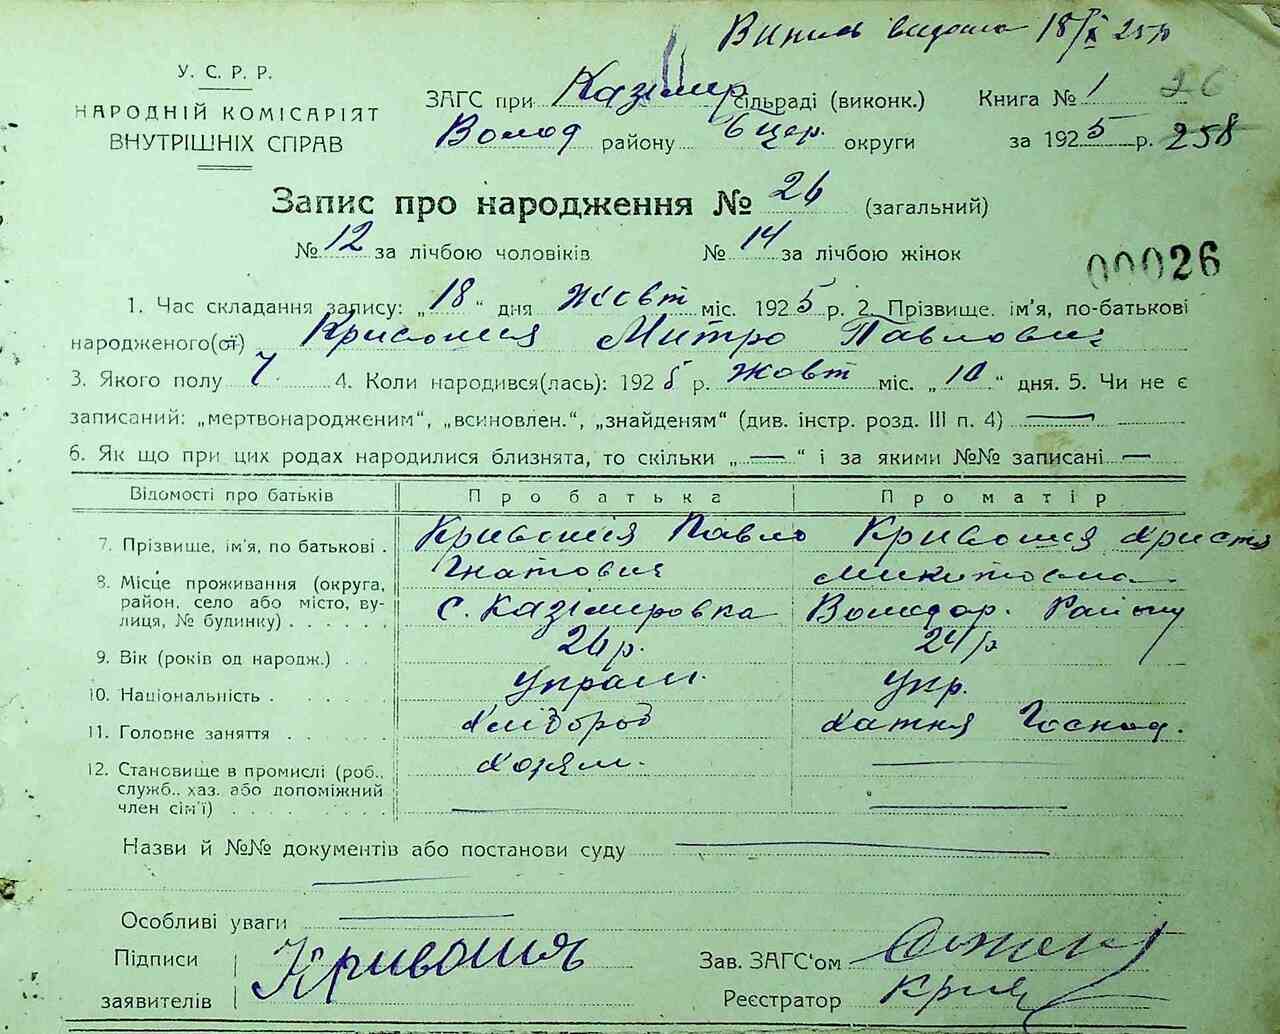 Випись видана 18/X 25 р
У. С. Р. Р.
НАРОДНІЙ КОМІСАРІЯТ
ВНУТРІШНІХ СПРАВ
ЗАГС при Казімир сільраді (виконк.) Книга № 1 26
Волод району Б Цер. округи за 1925 р. 258
Запис про народження № 26 (загальний)
№ 12 за лічбою чоловіків № 14 за лічбою жінок
00026
1. Час складання запису: „18" дня Жовт міс. 1925 р. 2. Прізвище, ім'я, по-батькові
народженого(ої) Кривошия Митро Павлович
3. Якого полу Ч. 4. Коли народився(лась): 1925 р. Жовт міс. „10" дня. 5. Чи не є
записаний: „мертвонародженим", „всиновлен.", „знайденям" (див. інстр. розд. III п. 4) —
6. Як що при цих родах народилися близнята, то скільки „—" і за якими №№ записані —
Відомості про батьків Про батька Про матір
7. Прізвище, ім'я, по батькові . Кривошия Павло Кривошия Христя
Гнатович Микитовна
8. Місце проживання (округа, район, село або місто, вулиця, № будинку) . . . . . С. Казімировка Володар. Району
9. Вік (років од народж.) . . 26 р. 24 р
10. Національність . . . . . Украін. Укр.
11. Головне заняття . . . . Хлібороб Хатня Господ.
12. Становище в промислі (роб., служб., хаз. або допоміжний член сім'ї) . . . . . . . . Хозяін. —
Назви й №№ документів або постанови суду —
Особливі уваги —
Підписи Кривошия Зав. ЗАГС'ом
заявителів Реєстратор